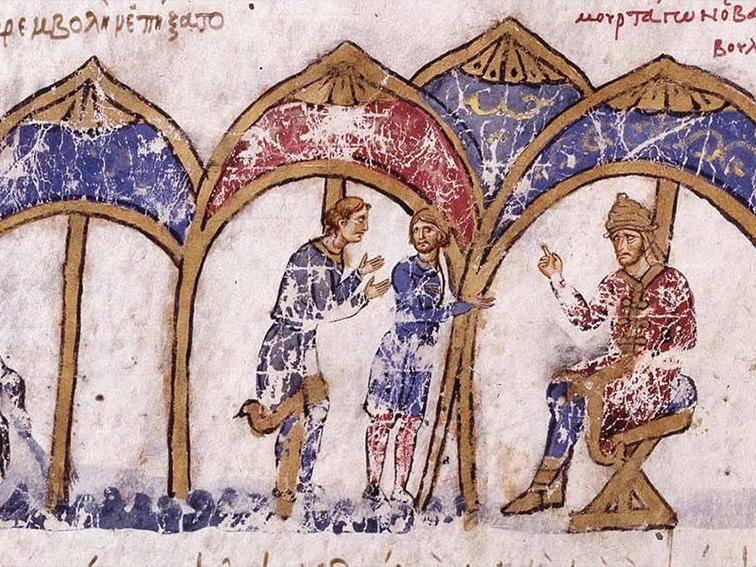 ρεμβολὴν ἐπήξατο
μουρτάπων ὁ βα
βουλ